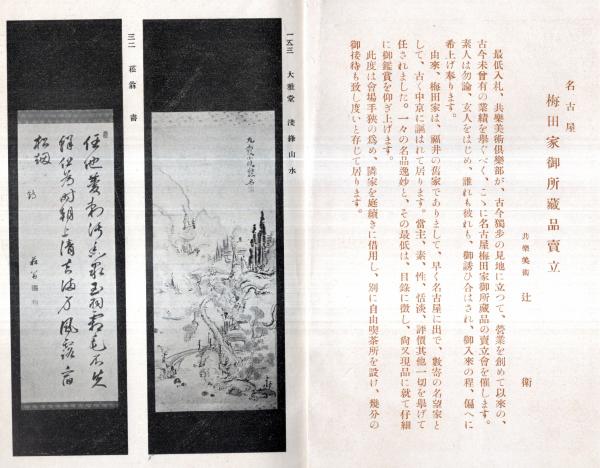 名古屋
梅田家御所藏品賣立
共樂美術 辻 衞
最低入札、共樂美術俱樂部が、古今獨步の見地に立つて、營業を創めて以來の、
古今未曾有の業績を擧ぐべく、こゝに名古屋梅田家御所藏品の賣立會を催します。
素人は勿論、玄人をはじめ、誰れも彼れも、御誘ひ合はされ、御入來の程、偏へに
希上げ奉ります。
由來、梅田家は、福井の舊家でありまして、早く名古屋に出で、數寄の名望家と
して、古く中京に謳はれて居ります。當主、素、性、恬淡、評價其他一切を擧げて
任されました。一々の名品逸妙と、その最低は、目錄に徵し、尙又現品に就て仔細
に御鑑賞を仰ぎ上げます。
此度は會場手狹の爲め、隣家を庭續きに借用し、別に自由喫茶所を設け、幾分の
御接待も致し度いと存じて居ります。
一五三 大雅堂 淺絳山水
三二 菘翁 書